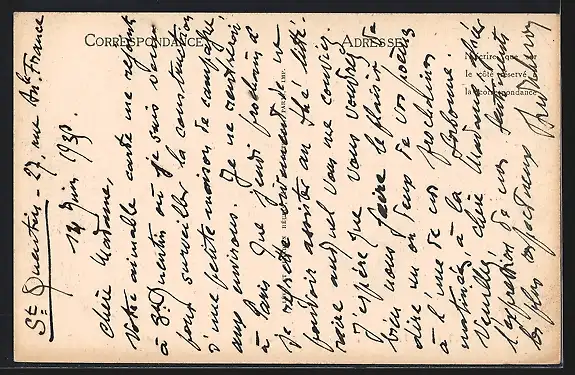 CORRESPONDANCE
ADRESSE
N'écrire que sur
le côté réservé
la correspondance
St Quentin - 27, rue An. France
14 Juin 1930
Chère Madame,
Votre aimable carte me rejoint
à St Quentin où je suis venu
pour surveiller la construction
d'une petite maison de campagne
aux environs. Je ne rentrerai
à Paris que jeudi prochain &
je regrette vivement de ne
pouvoir assister au thé litté-
raire auquel vous me conviez.
J'espère que vous voudrez
bien nous faire le plaisir de
dire un ou deux de vos poèmes
à l'une de nos prochaines
matinées, à la Sorbonne.
Veuillez, chère Madame, agréer
l'expression de nos sentiments
les plus affectueux